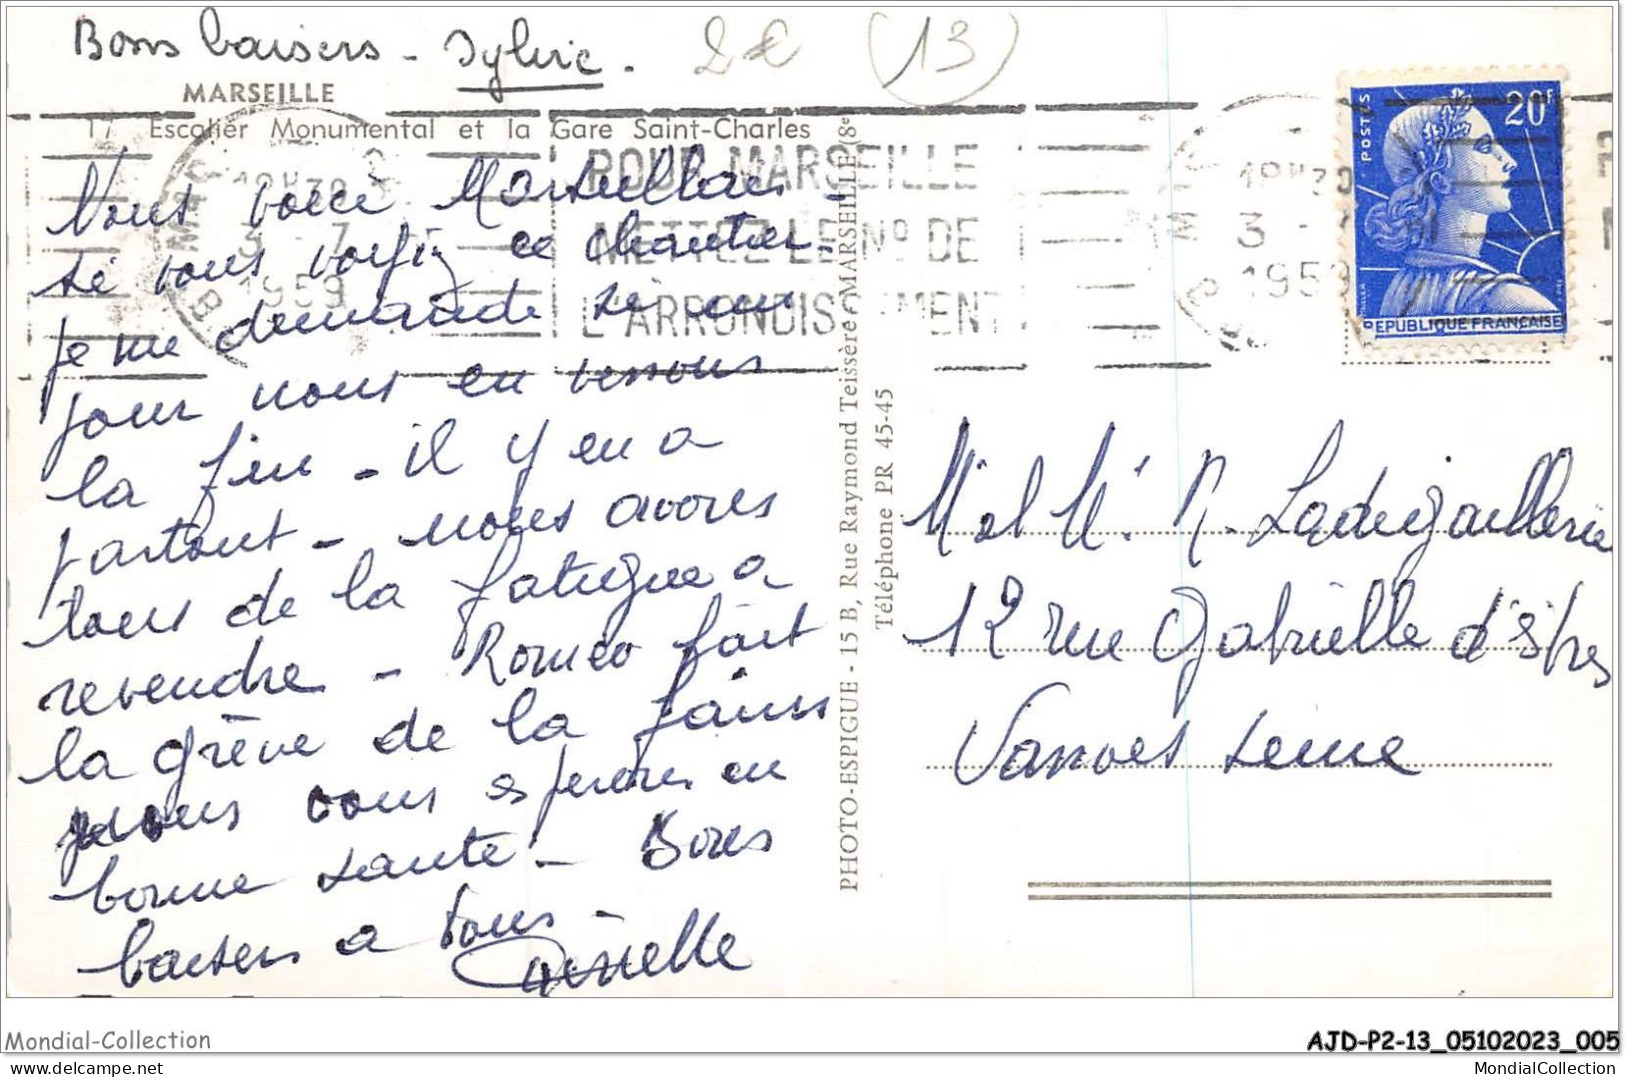 Bons baisers - Sylvie.
2€ (13)
MARSEILLE
17 Escalier Monumental et la Gare Saint-Charles
Nous voici Marseillais -
si vous voyiez ce chantier -
je me demande si un
jour nous en verrons
la fin - il y en a
partout - nous avons
tous de la fatigue a
revendre - Romeo fait
la grève de la faim
nous vous esperons en
bonne santé - Bons
baisers a tous -
POUR MARSEILLE
METTEZ LE Nº DE
L'ARRONDISSEMENT
18H30
3 - 7
1959
18H30
3 - 7
1959
20F
POSTES
REPUBLIQUE FRANÇAISE
PHOTO-ESPIGUE - 15 B, Rue Raymond Teissère - MARSEILLE (8e
Téléphone PR 45-45
12 rue Gabrielle d'Estres
Vanves Seine
Mondial-Collection
AJD-P2-13_05102023_005
MondialCollection